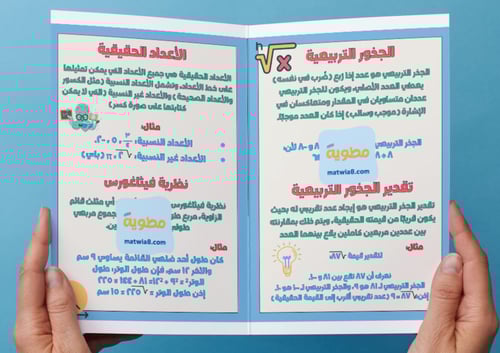 الجذور التربيعية
الجذر التربيعي هو عدد إذا رُبع (ضُرب في نفسه)
يعطي العدد الأصلي، ويكون للجذر التربيعي
عددان متساويان في المقدار ومتعاكسان في
الإشارة (موجب وسالب) إذا كان العدد موجبًا.
الجذر التربيعي
و -٨ لأن:
مطوية
matwia8.com
تقدير الجذور التربيعية
تقدير الجذر التربيعي هو إيجاد عدد تقريبي له بحيث
يكون قريبًا من قيمته الحقيقية، ويتم ذلك بمقارنته
بين عددين مربعين كاملين يقع بينهما العدد
مثال:
لتقدير قيمة √٨٧
نعرف أن ٨٧ تقع بين ٨١ و ١٠٠.
الجذر التربيعي لـ ٨١ هو ٩، والجذر التربيعي لـ ١٠٠ هو ١٠.
إذن √٨٧ ≈ ٩ (عدد تقريبي أقرب إلى القيمة الحقيقية)
الأعداد الحقيقية
الأعداد الحقيقية هي جميع الأعداد التي يمكن تمثيلها
على خط الأعداد، وتشمل الأعداد النسبية (مثل الكسور
والأعداد الصحيحة) والأعداد غير النسبية (التي لا يمكن
كتابتها على صورة كسر)
مثال:
الأعداد النسبية:
الأعداد غير النسبية: √٢، π (باي)
نظرية فيثاغورس
نظرية فيثاغورس
في مثلث قائم
الزاوية، مربع طول
مجموع مربعي
مطوية
matwia8.com
مثال:
كان طول أحد ضلعي القائمة يساوي ٩ سم
والآخر ١٢ سم، فإن طول الوتر: طول
الوتر² = ٩² + ١٢² = ٨١ + ١٤٤ = ٢٢٥
إذن طول الوتر = √٢٢٥ = ١٥ سم